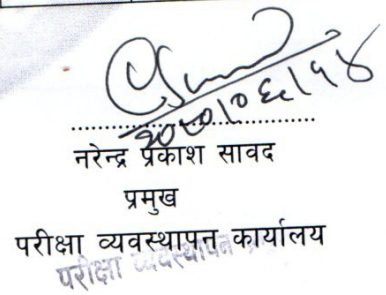 २०८०।०६।१४
नरेन्द्र प्रकाश सावद
प्रमुख
परीक्षा व्यवस्थापन कार्यालय
परीक्षा व्यवस्थापन